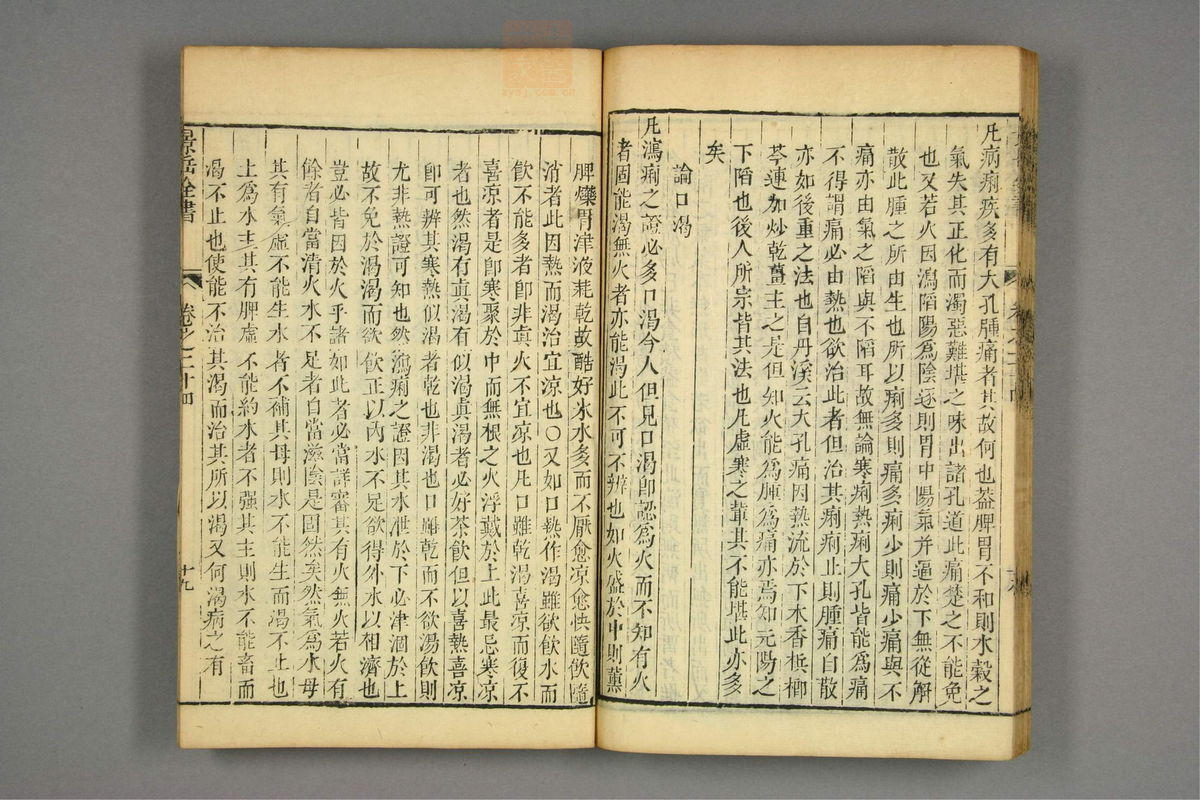 凡病痢疾多有大孔腫痛者其故何也蓋脾胃不和則水穀之
氣失其正化而濁惡難堪之味出諸孔道此痛楚之不能免
也又若火因瀉陷陽爲陰逐則胃中陽氣并逼於下無從解
散此腫之所由生也所以痢多則痛多痢少則痛少痛與不
痛亦由氣之陷與不陷耳故無論寒痢熱痢大孔皆能爲痛
不得謂痛必由熱也欲治此者但治其痢痢止則腫痛自散
亦如後重之法也自丹溪云大孔痛因熱流於下木香梹榔
芩連加炒乾薑主之是但知火能爲腫爲痛亦焉知元陽之
下陷也後人所宗皆其法也凡虛寒之輩其不能堪此亦多
矣
論口渴
凡瀉痢之證必多口渴今人但見口渴卽認爲火而不知有火
者固能渴無火者亦能渴此不可不辨也如火盛於中則薰
脾爍胃津液耗乾故酷好氷水多而不厭愈凉愈快隨飲隨
消者此因熱而渴治宜凉也○又如口熱作渴雖欲飲水而
飲不能多者卽非眞火不宜凉也凡口雖乾渴喜凉而復不
喜凉者是卽寒聚於中而無根之火浮戴於上此最忌寒凉
者也然渴有眞渴有似渴眞渴者必好茶飲但以喜熱喜凉
卽可辨其寒熱似渴者乾也非渴也口雖乾而不欲湯飲則
尤非熱證可知也然瀉痢之證因其水泄於下必津涸於上
故不免於渴渴而欲飲正以內水不足欲得外水以相濟也
豈必皆因於火乎諸如此者必當詳審其有火無火若火有
餘者自當清火水不足者自當滋陰是固然矣然氣爲水母
其有氣虛不能生水者不補其母則水不能生而渴不止也
土爲水主其有脾虛不能約水者不强其主則水不能畜而
渴不止也使能不治其渴而治其所以渴又何渴病之有
景岳全書
卷之二十四
十九